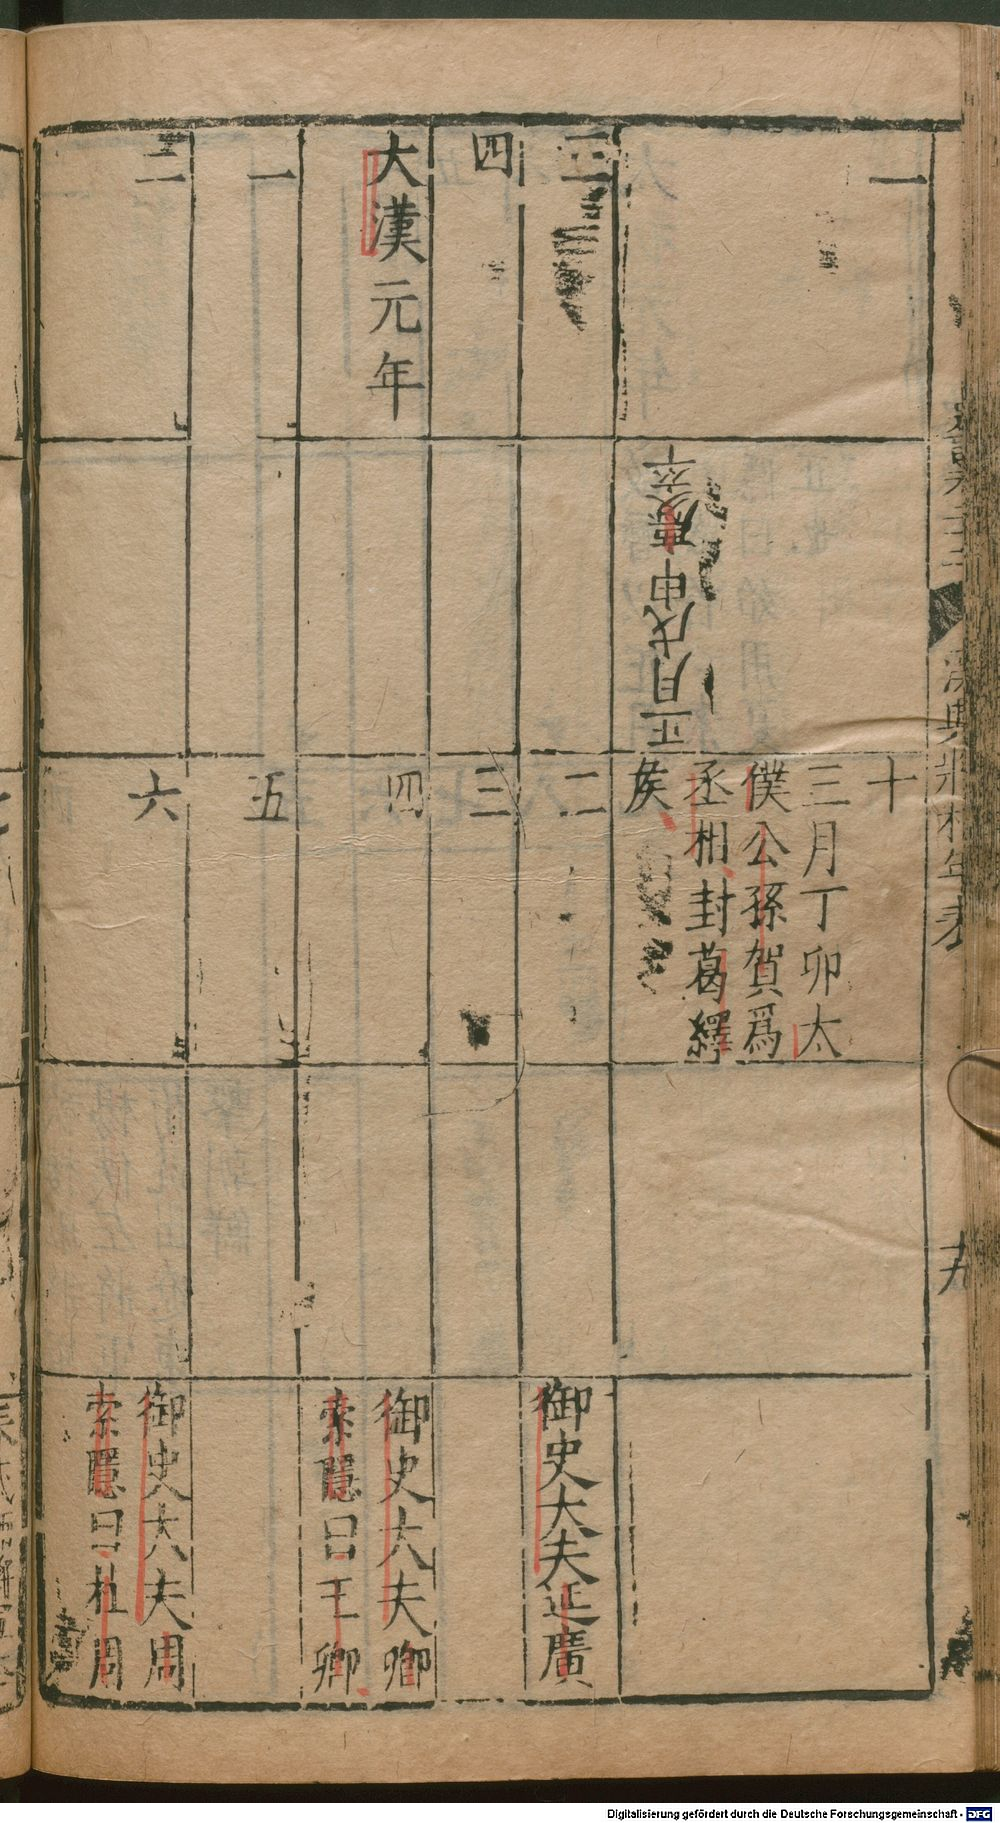 一
正月戊申慶卒
十
三月丁卯太
僕公孫賀爲
丞相封葛繹
矦
三
二
御史大夫延廣
四
三
大漢元年
四
御史大夫卿
索隱曰王卿
一
五
二
六
御史大夫周
索隱曰杜周
漢興將相年表
Digitalisierung gefördert durch die Deutsche Forschungsgemeinschaft - DFG